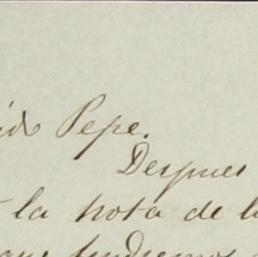 Pepe.
Despues
la nota de
tendremos